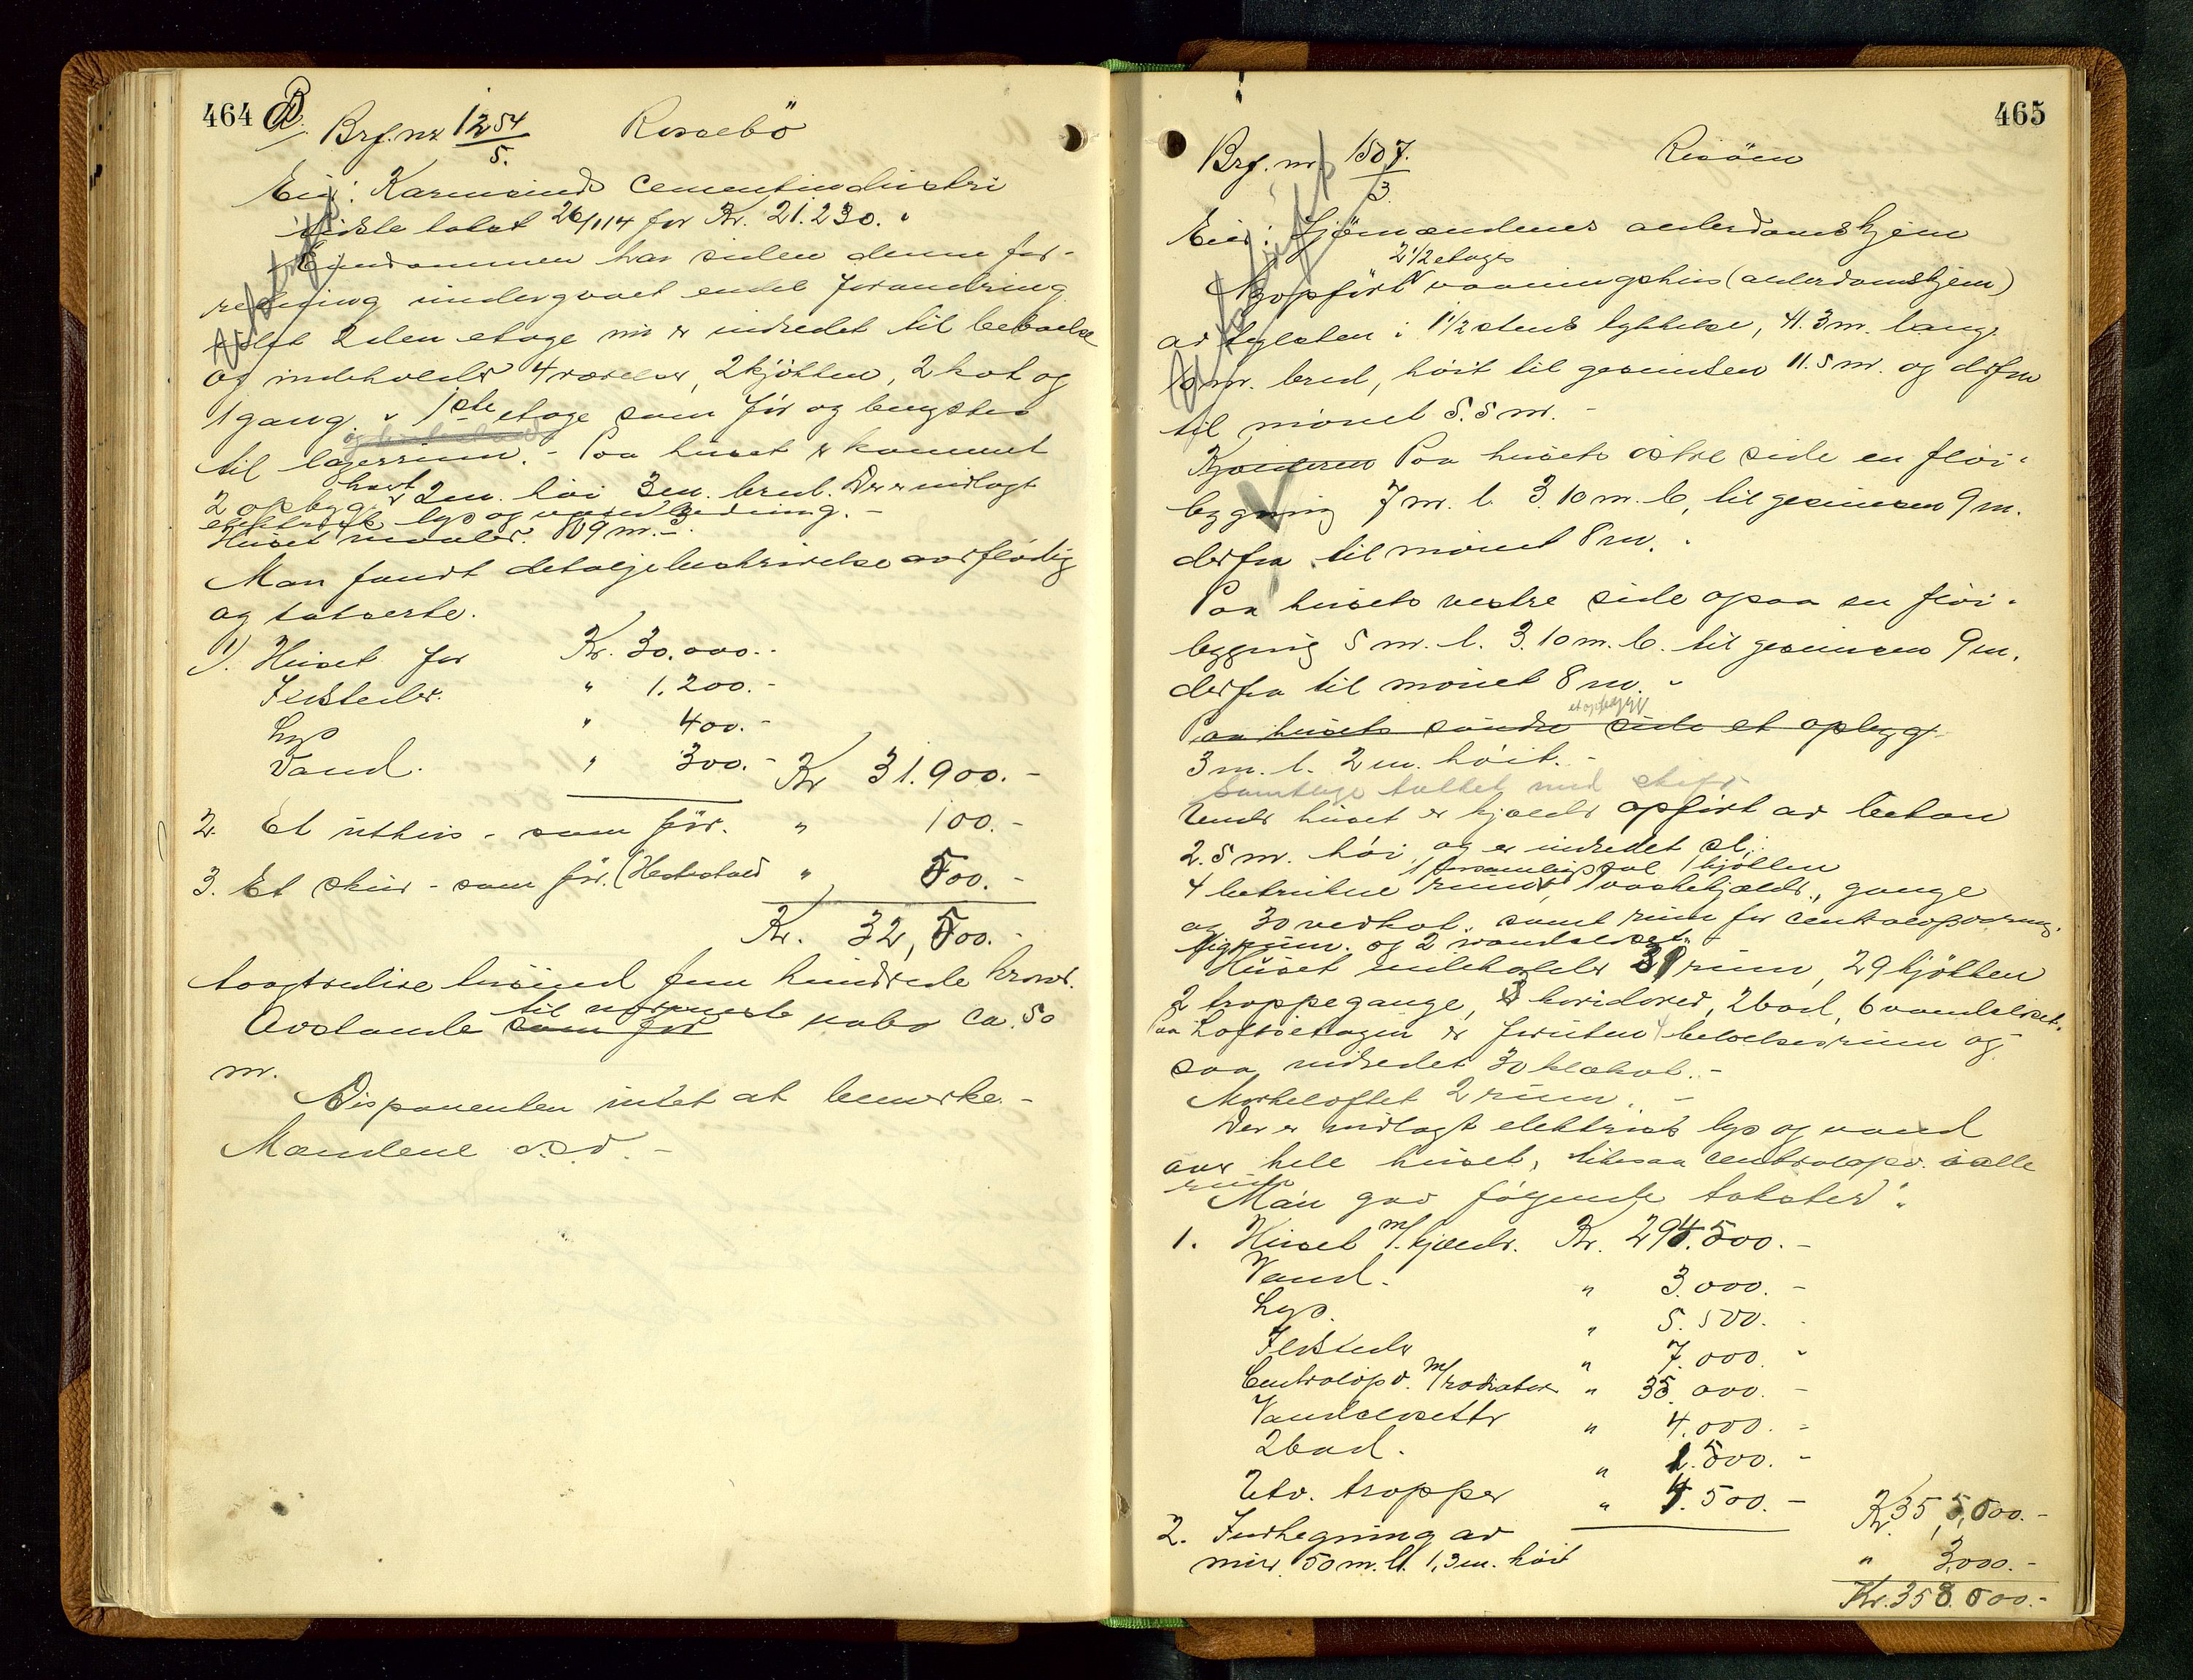 464
Brf. nr 1254/5. Rossebö
Eier: Karmsund cementindustri
sidste takst 26/1 14 for Kr. 21.230.
Eiendommen har siden denne for-
retning undergaaet endel forandring
idet 2den etage nu er indredet til beboelse
og indeholder 4 værelser, 2 kjökken, 2 kot og
1 gang. 1ste etage som för og benyttes
til lagerrum. - Paa huset er kommet
2 opbygg hvert er 2 m. höi 3 m. bred. Der er indlagt
elektrisk lys og vandledning. -
Huset maaler 809 m.3
Man fandt detaljebeskrivelse overflödig
og takserte.
1). Huset for Kr. 30.000.-
Ildsteder. " 1.200.-
Lys " 400.-
Vand. " 300.- Kr 31.900.-
2. Et uthus - som för. " 100.-
3. Et skur - som för. (Hestestald " 500.-
Kr. 32,500.-
toogtredive tusind fem hundrede kroner.
Avstande som för til nærmeste nabo ca. 50
m.
Disponenten intet at bemerke. -
Mændene s.s.v. -
465
Brf. nr. 1507./3. Risöen
Eier: Sjömændenes alderdomshjem
2 1/2 etages
Nyopfört vaaningshus (alderdomshjem)
av teglsten i 1 1/2 stens tykkelse, 41.3 m. lang
m. bred, höit til gesimsen 11.5 m. og derfra
til mönet 5.5 m. -
Paa husets östre side en flöi-
bygning 7 m. l. 3.10 m. b. til gesimsen 9 m.
derfra til mönet 8 m.
Paa husets vestre side ogsaa en flöi-
bygning 5 m. l. 3.10 m. b. til gesimsen 9 m.
derfra til mönet 8 m. -
et opbygg
Paa husets söndre side et opbygg
3 m. l. 2 m. höit. -
Samtlige tækket med skifer
Under huset er kjælder opfört av beton
2.5 m. höi, og er indredet sl.:
1 forsamlingssal 1 kjökken
4 betrukne rum, 1 vaskekjælder, gange
og 30 vedkot, samt rum for centralopvarmn.
ligrum. og 2 vandcloset. -
Huset indeholder 39 rum, 29 kjökken
2 trappegange, 3 koridorer, 2 bad, 6 vandcloset.
Paa Loftsetagen er foruten 4 beboelsesrum og-
saa indredet 30 klækot. -
Mørkeloftet 2 rum. -
Der er indlagt elektrisk lys og vand
over hele huset, likesaa centralopv. i alle
rum
Man gav fölgende takster:
1. Huset m/ kjælder. Kr. 294.500.-
Vand. " 3.000.-
Lys. " 5.500.-
Ildsteder " 7.000.-
Centralopv. m/ radiatorer " 35.000.-
Vandclosetter " 4.000.-
2 bad. " 1.500.-
Utv. trapper " 4.500.- Kr. 355,000.-
2. Indhegning av
mur 50 m. l. 1,3 m. höit " 3,000.-
Kr. 358.000.-